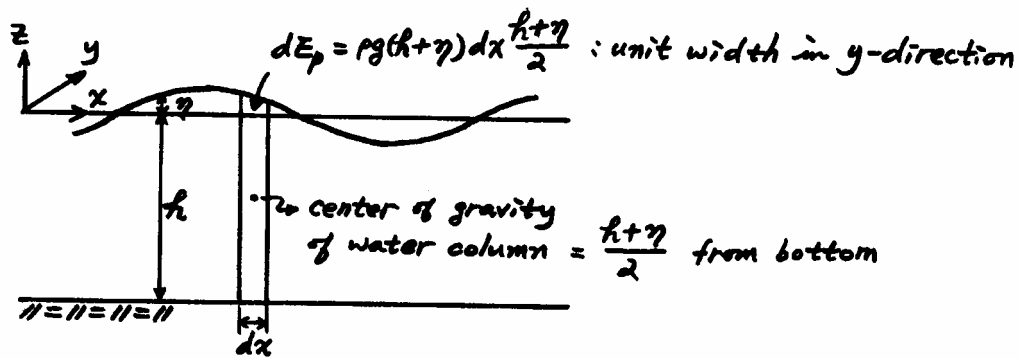 z
y
dE_p = ρg(h+η)dx (h+η)/2 : unit width in y-direction
x
η
h
center of gravity
of water column = (h+η)/2 from bottom
dx